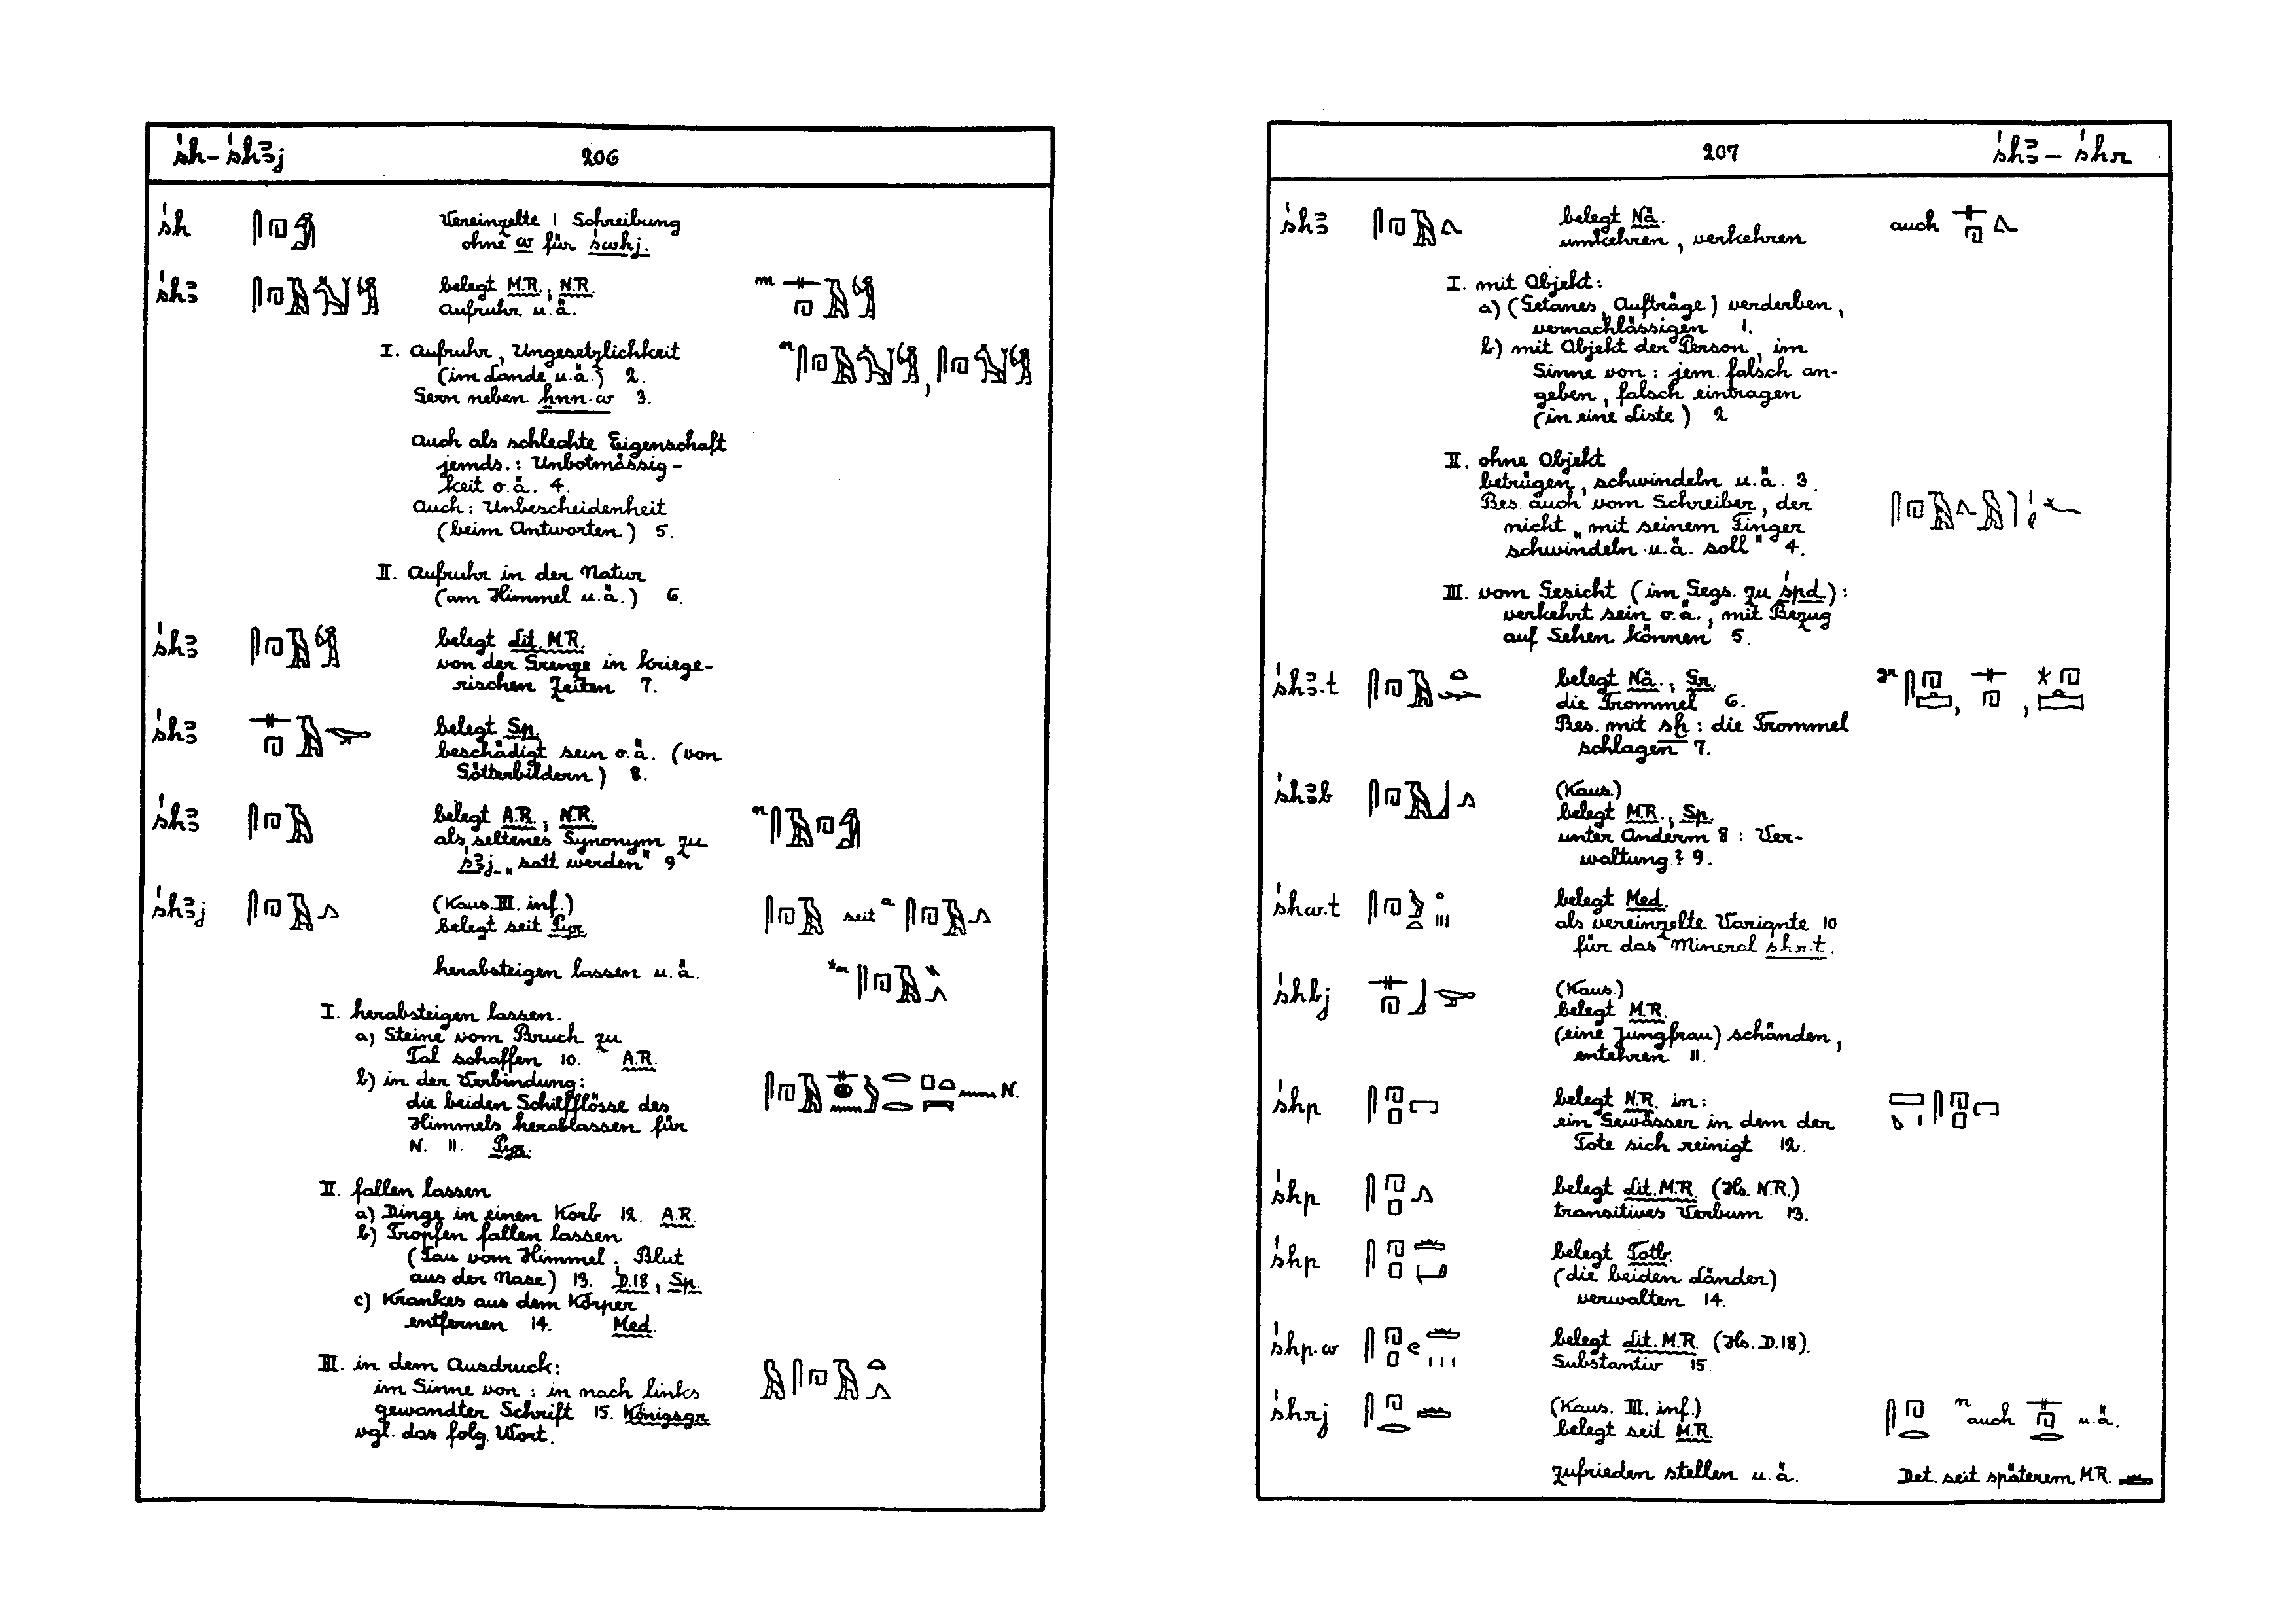 śh – śhꜣj 206
śh Vereinzelte 1 Schreibung
ohne w für śwhj.
śhꜣ belegt M.R.; N.R.
Aufruhr u.ä.
I. Aufruhr, Ungesetzlichkeit
(im Lande u.ä.) 2.
Gern neben ẖnn.w 3.
Auch als schlechte Eigenschaft
jemds.: Unbotmässig-
keit o.ä. 4.
Auch: Unbescheidenheit
(beim Antworten) 5.
II. Aufruhr in der Natur
(am Himmel u.ä.) 6.
śhꜣ belegt Lit. M.R.
von der Grenze in kriege-
rischen Zeiten 7.
śhꜣ belegt Sp.
beschädigt sein o.ä. (von
Götterbildern) 8.
śhꜣ belegt A.R., N.R.
als seltenes Synonym zu
śꜣj „satt werden" 9
śhꜣj (Kaus. III. inf.) seit a
belegt seit Pyr.
herabsteigen lassen u.ä.
I. herabsteigen lassen.
a) Steine vom Bruch zu
Tal schaffen 10. A.R.
b) in der Verbindung: N.
die beiden Schilfflösse des
Himmels herablassen für
N. 11. Pyr.
II. fallen lassen
a) Dinge in einen Korb 12. A.R.
b) Tropfen fallen lassen
(Tau vom Himmel; Blut
aus der Nase) 13. D.18, Sp.
c) Krankes aus dem Körper
entfernen 14. Med.
III. in dem Ausdruck:
im Sinne von: in nach links
gewandter Schrift 15. Königsgr.
vgl. das folg. Wort.
207 śhꜣ – śhr
śhꜣ belegt Nä. auch
umkehren, verkehren
I. mit Objekt:
a) (Getanes, Aufträge) verderben,
vernachlässigen 1.
b) mit Objekt der Person, im
Sinne von: jem. falsch an-
geben, falsch eintragen
(in eine Liste) 2
II. ohne Objekt
betrügen, schwindeln u.ä. 3.
Bes. auch vom Schreiber, der
nicht „mit seinem Finger
schwindeln u.ä. soll" 4.
III. vom Gesicht (im Gegs. zu śpd):
verkehrt sein o.ä., mit Bezug
auf Sehen können 5.
śhꜣ.t belegt Nä., Gr.
die Trommel 6.
Bes. mit sḫ: die Trommel
schlagen 7.
śhꜣb (Kaus.)
belegt M.R., Sp.
unter Anderm 8: Ver-
waltung? 9.
śhw.t belegt Med.
als vereinzelte Variante 10
für das Mineral śhr.t.
śhbj (Kaus.)
belegt M.R.
(eine Jungfrau) schänden,
entehren 11.
śhp belegt N.R. in:
ein Gewässer in dem der
Tote sich reinigt 12.
śhp belegt Lit. M.R. (Hs. N.R.)
transitives Verbum 13.
śhp belegt Totb.
(die beiden Länder)
verwalten 14.
śhp.w belegt Lit. M.R. (Hs. D.18).
Substantiv 15.
śhrj (Kaus. III. inf.) n auch u.ä.
belegt seit M.R.
zufrieden stellen u.ä. Det. seit späterem MR.